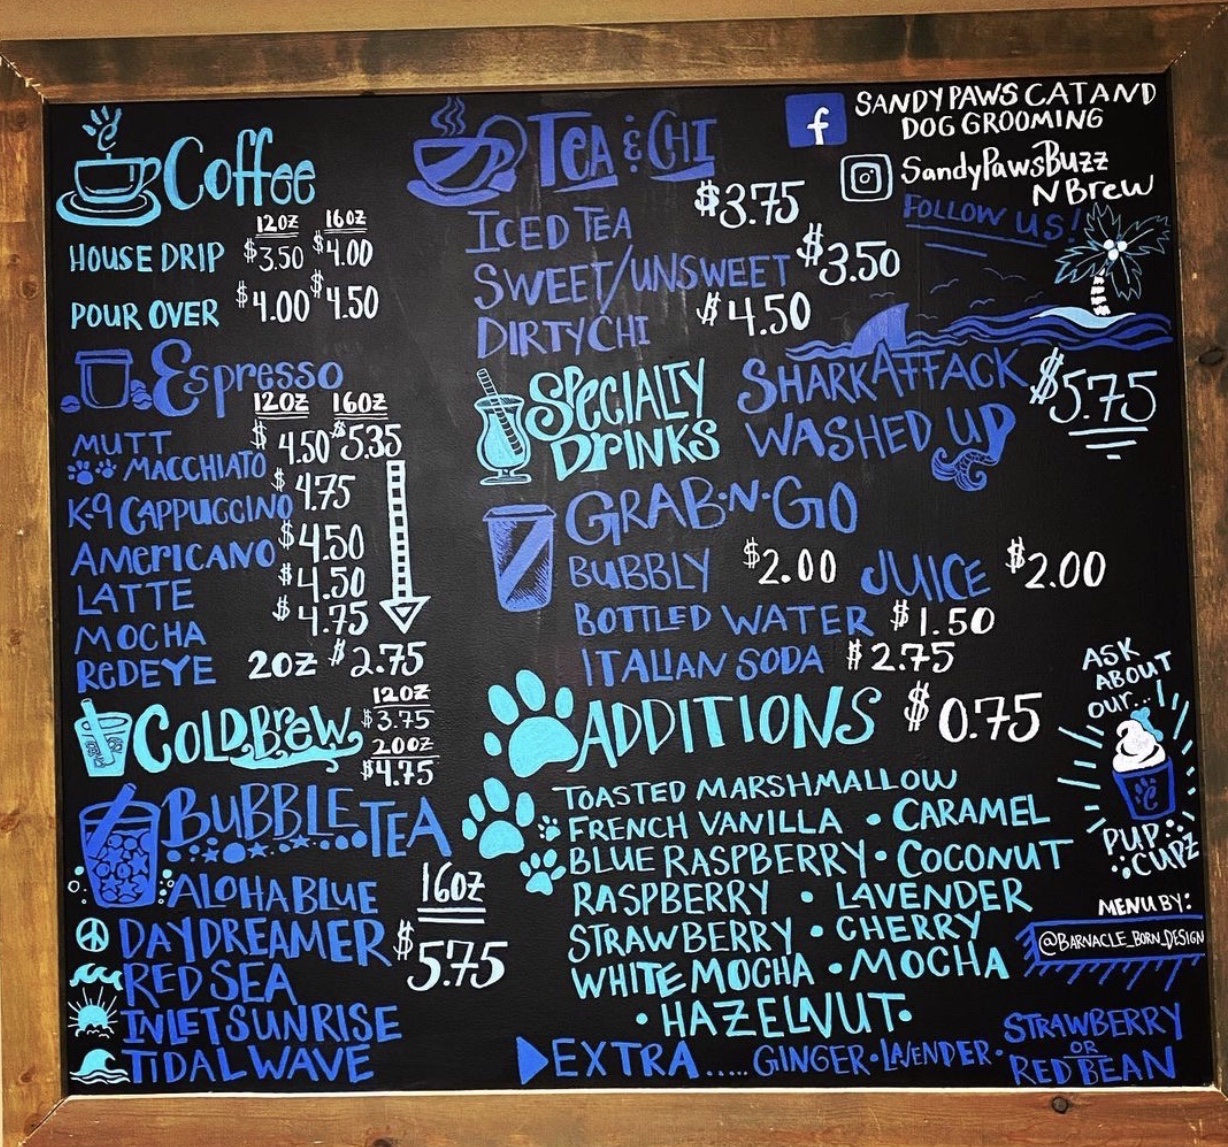 Coffee
12OZ 16OZ
HOUSE DRIP $3.50 $4.00
POUR OVER $4.00 $4.50
Espresso
12OZ 16OZ
MUTT MACCHIATO $4.50 $5.35
K-9 CAPPUCCINO $4.75
AMERICANO $4.50
LATTE $4.50
MOCHA $4.75
REDEYE 2OZ $2.75
COLD BREW
12OZ
$3.75
20OZ
$4.75
BUBBLE TEA
16OZ
$5.75
ALOHA BLUE
DAYDREAMER
RED SEA
INLET SUNRISE
TIDAL WAVE
TEA & CHI
ICED TEA $3.75
SWEET/UNSWEET $3.50
DIRTY CHI $4.50
f
SANDY PAWS CAT AND
DOG GROOMING
SandyPawsBuzz
NBrew
FOLLOW US!
SPECIALTY
DRINKS
SHARK ATTACK
WASHED UP
$5.75
GRAB·N·GO
BUBBLY $2.00 JUICE $2.00
BOTTLED WATER $1.50
ITALIAN SODA $2.75
ADDITIONS $0.75
TOASTED MARSHMALLOW
FRENCH VANILLA • CARAMEL
BLUE RASPBERRY • COCONUT
RASPBERRY • LAVENDER
STRAWBERRY • CHERRY
WHITE MOCHA • MOCHA
• HAZELNUT •
EXTRA..... GINGER • LAVENDER • STRAWBERRY
OR
RED BEAN
ASK
ABOUT
OUR...
PUP
CUPZ
MENU BY:
@BARNACLE_BORN_DESIGN